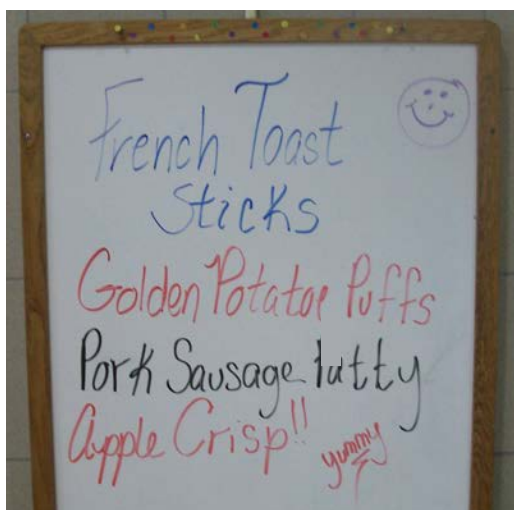 French Toast
Sticks
Golden Potatoe Puffs
Pork Sausage Patty
Apple Crisp!!
yummy